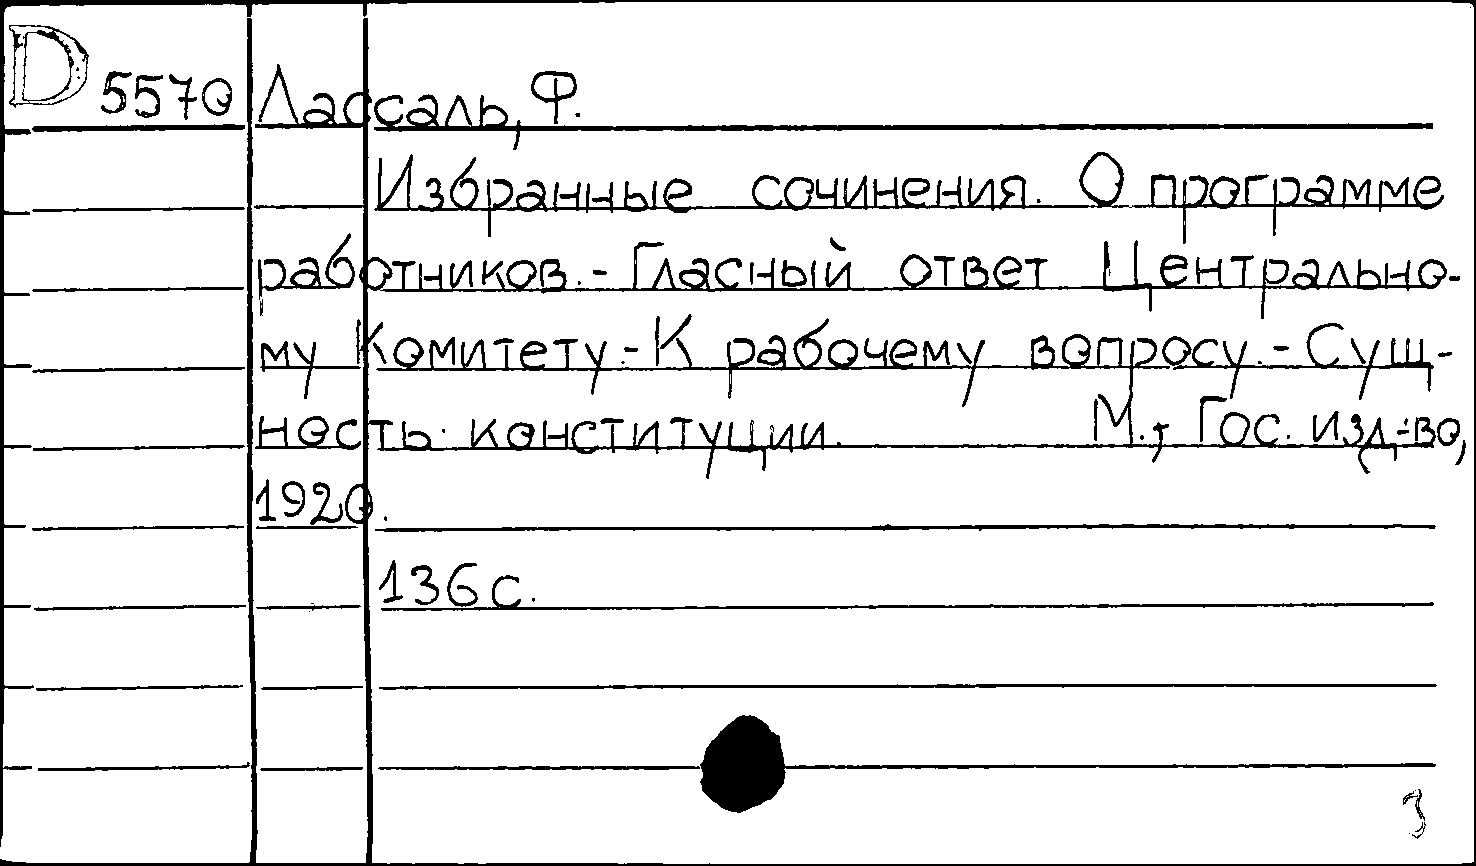 D 5570 Лассаль, Ф.
Избранные сочинения. О программе
работников.- Гласный ответ Центрально-
му Комитету.- К рабочему вопросу.- Сущ-
ность конституции. М., Гос. изд-во,
1920.
136 с.
3